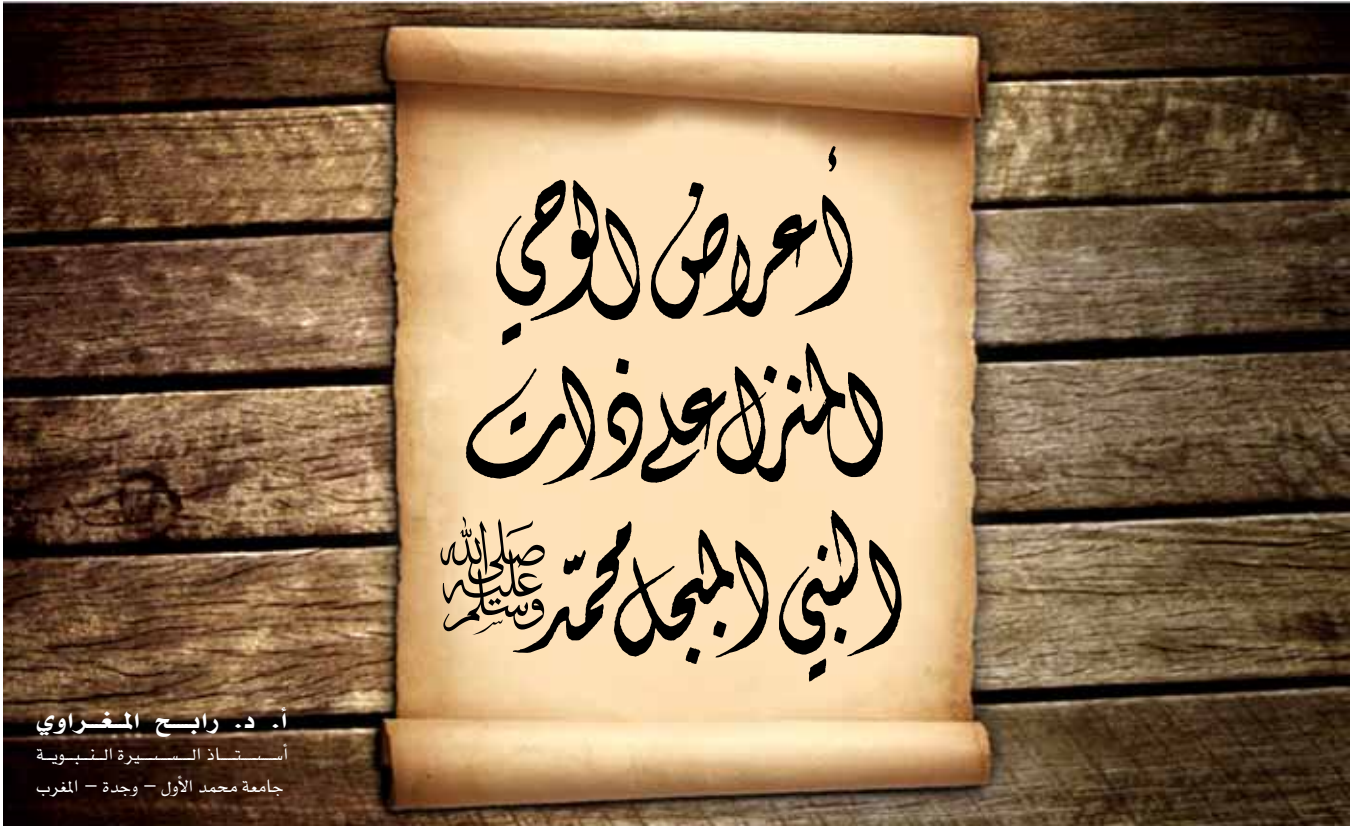 أعراض الوحي
المنزل على ذات
النبي المبجل محمّد صلى الله عليه وسلم
أ. د. رابح المغراوي
أستاذ السيرة النبوية
جامعة محمد الأول – وجدة – المغرب